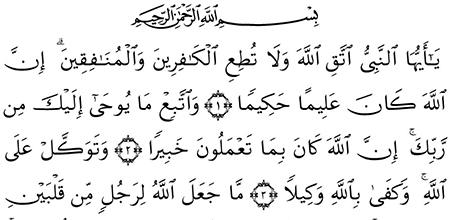 بِسْمِ ٱللَّهِ ٱلرَّحْمَٰنِ ٱلرَّحِيمِ
يَٰٓأَيُّهَا ٱلنَّبِيُّ ٱتَّقِ ٱللَّهَ وَلَا تُطِعِ ٱلْكَٰفِرِينَ وَٱلْمُنَٰفِقِينَۗ إِنَّ
ٱللَّهَ كَانَ عَلِيمًا حَكِيمًا ﴿١﴾ وَٱتَّبِعْ مَا يُوحَىٰٓ إِلَيْكَ مِن
رَّبِّكَۚ إِنَّ ٱللَّهَ كَانَ بِمَا تَعْمَلُونَ خَبِيرًا ﴿٢﴾ وَتَوَكَّلْ عَلَى
ٱللَّهِۚ وَكَفَىٰ بِٱللَّهِ وَكِيلًا ﴿٣﴾ مَّا جَعَلَ ٱللَّهُ لِرَجُلٍ مِّن قَلْبَيْنِ